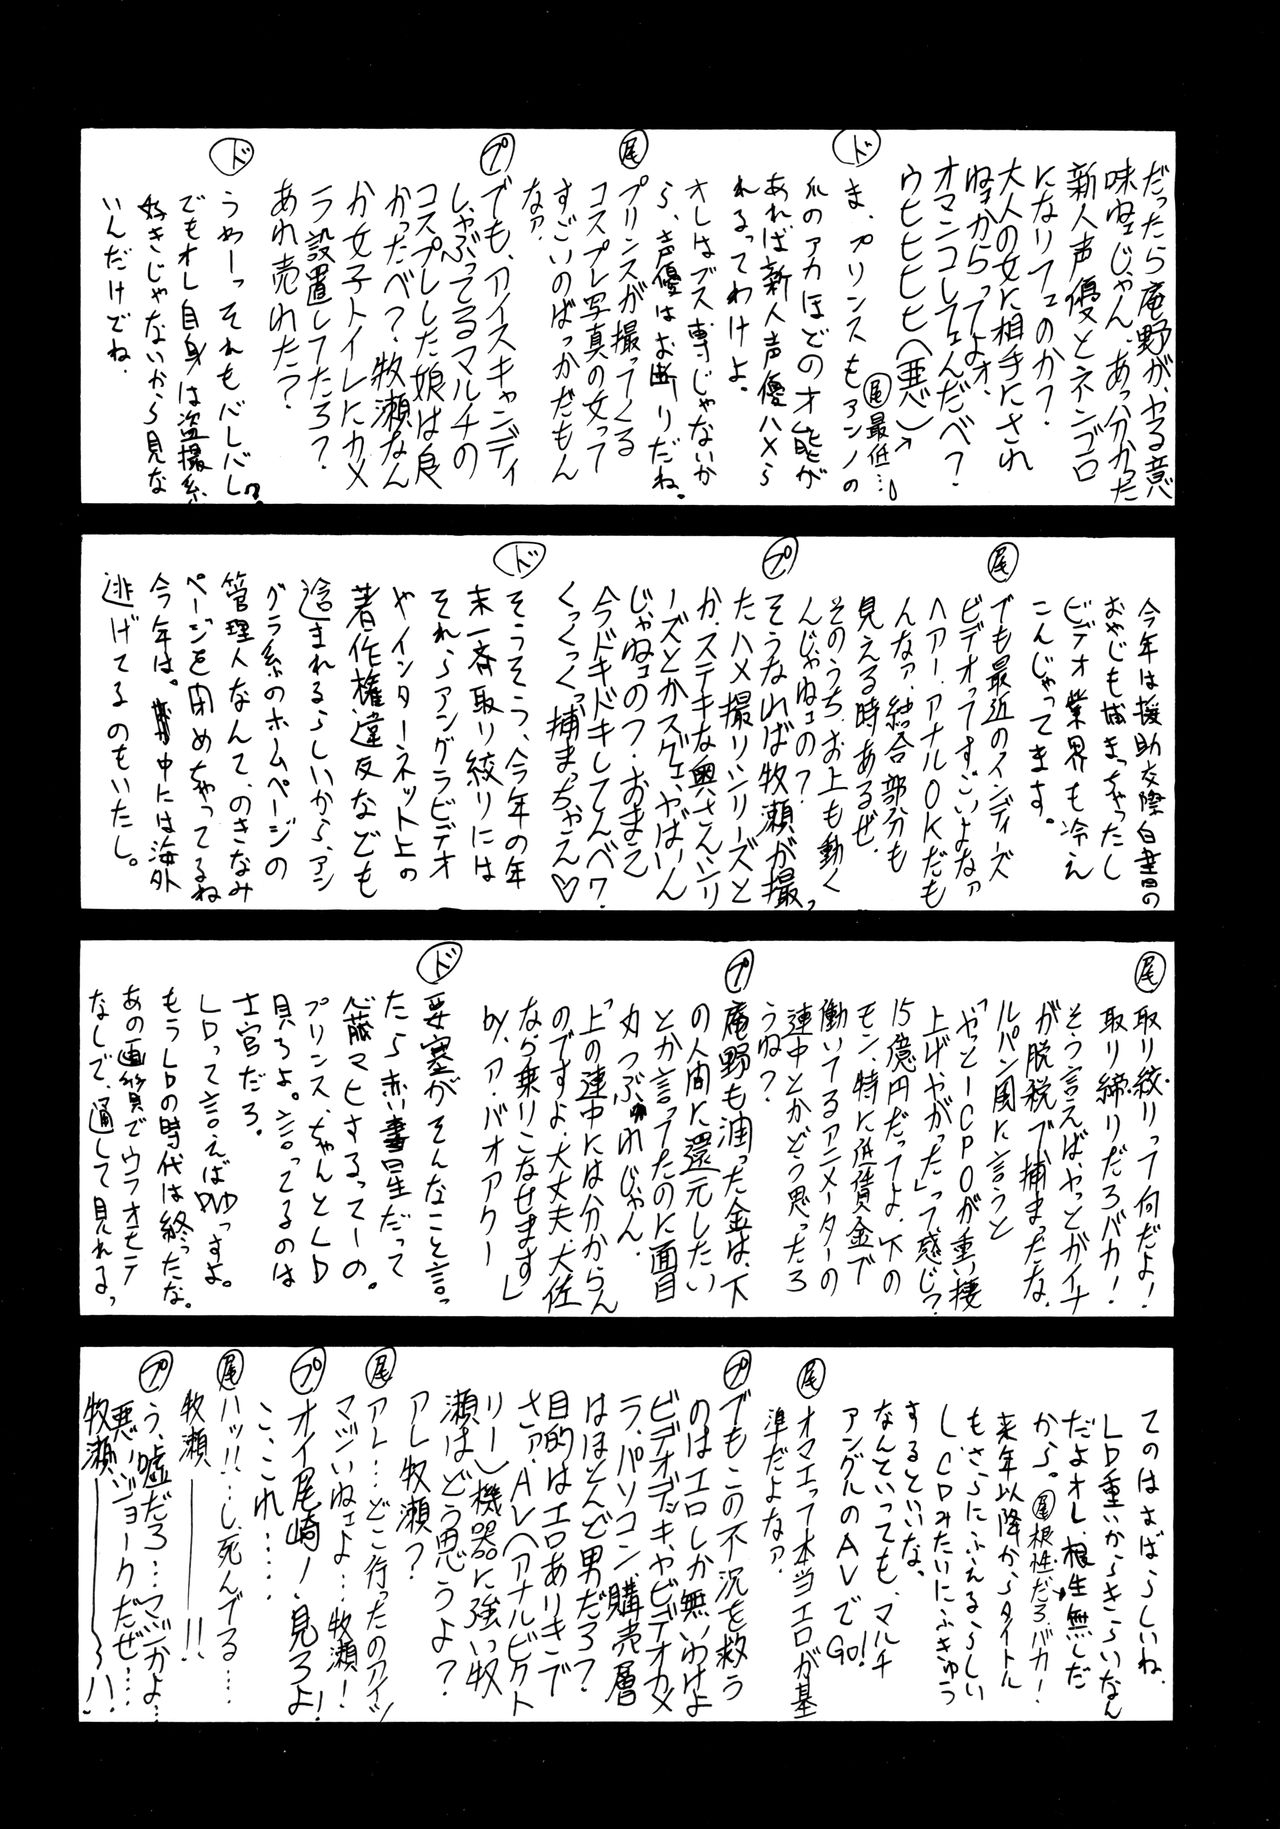 だったら庵野が、ヤる意
味ねェじゃん。あっ分かった
新人声優とネンゴロ
になりフェのか？
大人の女に相手にされ
ねェからってよォ、
オマンコしてェんだべ？
ウヒヒヒヒヒ（悪）
尾最低…。
ド
ま、プリンスもアンノの
爪のアカほどの才能が
あれば新人声優ハメら
れるってわけよ。
オレはブス専じゃないか
ら、声優はお断りだね。
尾
プリンスが撮ってくる
コスプレ写真の女って
すごいのばっかだもん
なァ。
プ
でも、アイスキャンディ
しゃぶってるマルチの
コスプレした娘は良
かったべ？牧瀬なん
か女子トイレにカメ
ラ設置してたろ？
あれ売れた？
ド
うわーっそれもバレバレ？
でもオレ自身は盗撮系
好きじゃないから見な
いんだけどね。
今年は援助交際白書の
おやじも捕まっちゃったし
ビデオ業界も冷え
こんじゃってます。
尾
でも最近のインディーズ
ビデオってすごいよなァ
ヘアー、アナルOKだも
んなァ、結合部分も
見える時あるぜ。
そのうち、お上も動く
んじゃねェの？
プ
そうなれば牧瀬が撮っ
たハメ撮リシリーズと
か、ステキな奥さんシリ
ーズとかスゲェ、やばいん
じゃねェの？おまえ
今ドキドキしてんべ？
くっくっくっ捕まっちゃえ♡
ド
そうそう、今年の年
末一斉取り絞りには
それらアングラビデオ
やインターネット上の
著作権違反なども
含まれるらしいから、アン
グラ系のホームページの
管理人なんて、のきなみ
ページを閉めちゃってるね
今年は。中には海外
逃げてるのもいたし。
尾
取り絞りって何だよ！
取り締りだろバカ！
そう言えば、やっとガイナ
が脱税で捕まったな、
ルパン風に言うと
「やっとICPOが重い腰
上げやがった」って感じ？
15億円だってよ、下の
モン、特に低賃金で
働いてるアニメーターの
連中とかどう思ったろ
うね？
プ
庵野も浦った金は、下
の人間に還元したい
とか言ってたのに面目
丸つぶれじゃん。
「上の連中には分からん
のですよ、大丈夫、大佐
なら乗りこなせます」
by、ア・バオアクー
ド
要塞がそんなこと言っ
たら赤い彗星だって
心臓マヒするってーの。
プリンス、ちゃんとLD
見ろよ。言ってるのは
士官だろ。
LDって言えばDVDっすよ。
もうLDの時代は終ったな。
あの画質でウラオモテ
なしで、通して見れるっ
てのはすばらしいね。
LD重いからきらいなん
だよオレ、根生無しだ
から。尾根性だろバカ！
来年以降から、タイトル
もさらにふえるらしい
し、CDみたいにふきゅう
するといいな。
なんといっても、マルチ
アングルのAVでGO!
尾
オマエって本当エロが基
準だよなァ。
プ
でもこの不況を救う
のはエロしか無いわけよ
ビデオデッキ、やビデオカメ
ラ、パソコン、購売層
はほとんど男だろ？
目的はエロありきで
さァ。AV（アナルビクト
リー）機器に強い牧
瀬はどう思うよ？
アレ牧瀬？
尾
アレ…どこ行ったのアイツ
マズいねェよ…牧瀬！
プ
オイ尾崎！、見ろよ！
こ、これ……
尾
ハッ!!…し、死んでる…
牧瀬――!!
プ
う、嘘だろ…マジかよ…
悪いジョークだぜ……
牧瀬――〜ハ！